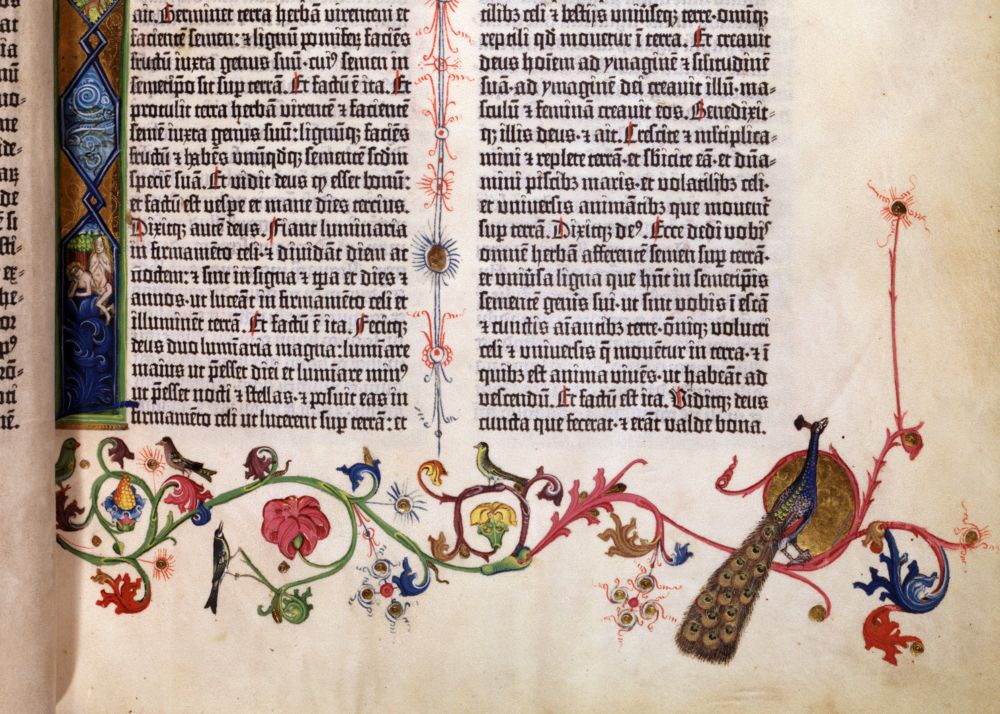 ait. Germinet terra herbā virentem et
facientē semen: ⁊ lignū pomiferū faciēs
fructū iuxta genus suū· cuiꝰ semen in
semetipo sit sup terrā. Et factū ē ita. Et
protulit terra herbā virentē ⁊ facientē
semē iuxta genus suū: lignūq̄ faciēs
fructū ⁊ habēs unūq̄dq̄ sementē scdm
speciē suā. Et vidit deus ꝙ esset bonū:
et factū est vespe et mane dies tercius.
Dixitq̄ autē deus. Fiant luminaria
in firmamēto celi· ⁊ dividāt diem ac
noctem: ⁊ sint in signa ⁊ tpa et dies ⁊
annos· ut luceāt in firmamēto celi et
illuminēt terrā. Et factū ē ita. Fecitq̄
deus duo luīaria magna: luīare
maius ut pesset diei et luīare minꝰ
ut pesset nocti ⁊ stellas· ⁊ posuit eas in
firmamēto celi ut lucerent sup terrā: et
tilibꝫ celi ⁊ bestijs uniūseq̄ terre· omniq̄
reptili qd movetur ī terra. Et creavit
deus hoīem ad ymaginē ⁊ silitudinē
suā· ad ymaginē dei creavit illū· ma-
sculū ⁊ feminā creavit eos. Benedixit-
q̄ illis deus· ⁊ ait. Crescite ⁊ multiplica-
mini ⁊ replete terrā· et sbicite eā· et dn̄a-
mini piscibꝫ maris· et volatilibꝫ celi·
et universis animātibꝫ que movent᷑
sup terrā. Dixitq̄ deꝰ. Ecce dedi vobis
omnē herbā afferentē semen sup terrā·
et univsa ligna que hn̄t in semetipis
sementē genēis sui· ut sint vobis ī escā
⁊ cunctis aīantibꝫ terre· oīq̄ volucri
celi ⁊ universis q̄ moventur in terra· ⁊ ī
quibꝫ est anima vivēs· ut habeāt ad
vescendū. Et factū est ita. Viditq̄ deus
cuncta que fecerat· ⁊ erāt valde bona.